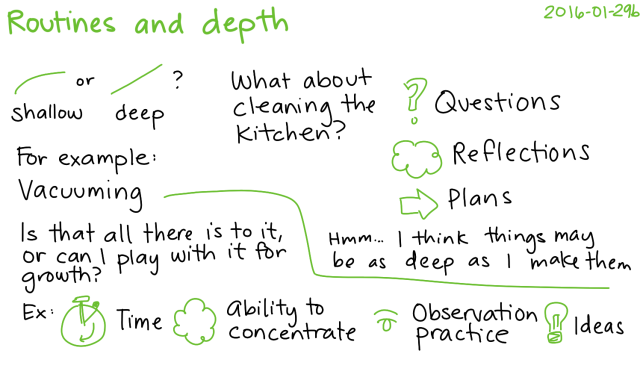 Routines and depth
2016-01-29b
or ?
shallow deep
For example:
Vacuuming
Is that all there is to it,
or can I play with it for
growth?
What about
cleaning the
kitchen?
? Questions
Reflections
Plans
Hmm... I think things may
be as deep as I make them
Ex: Time
ability to
concentrate
Observation
practice
Ideas